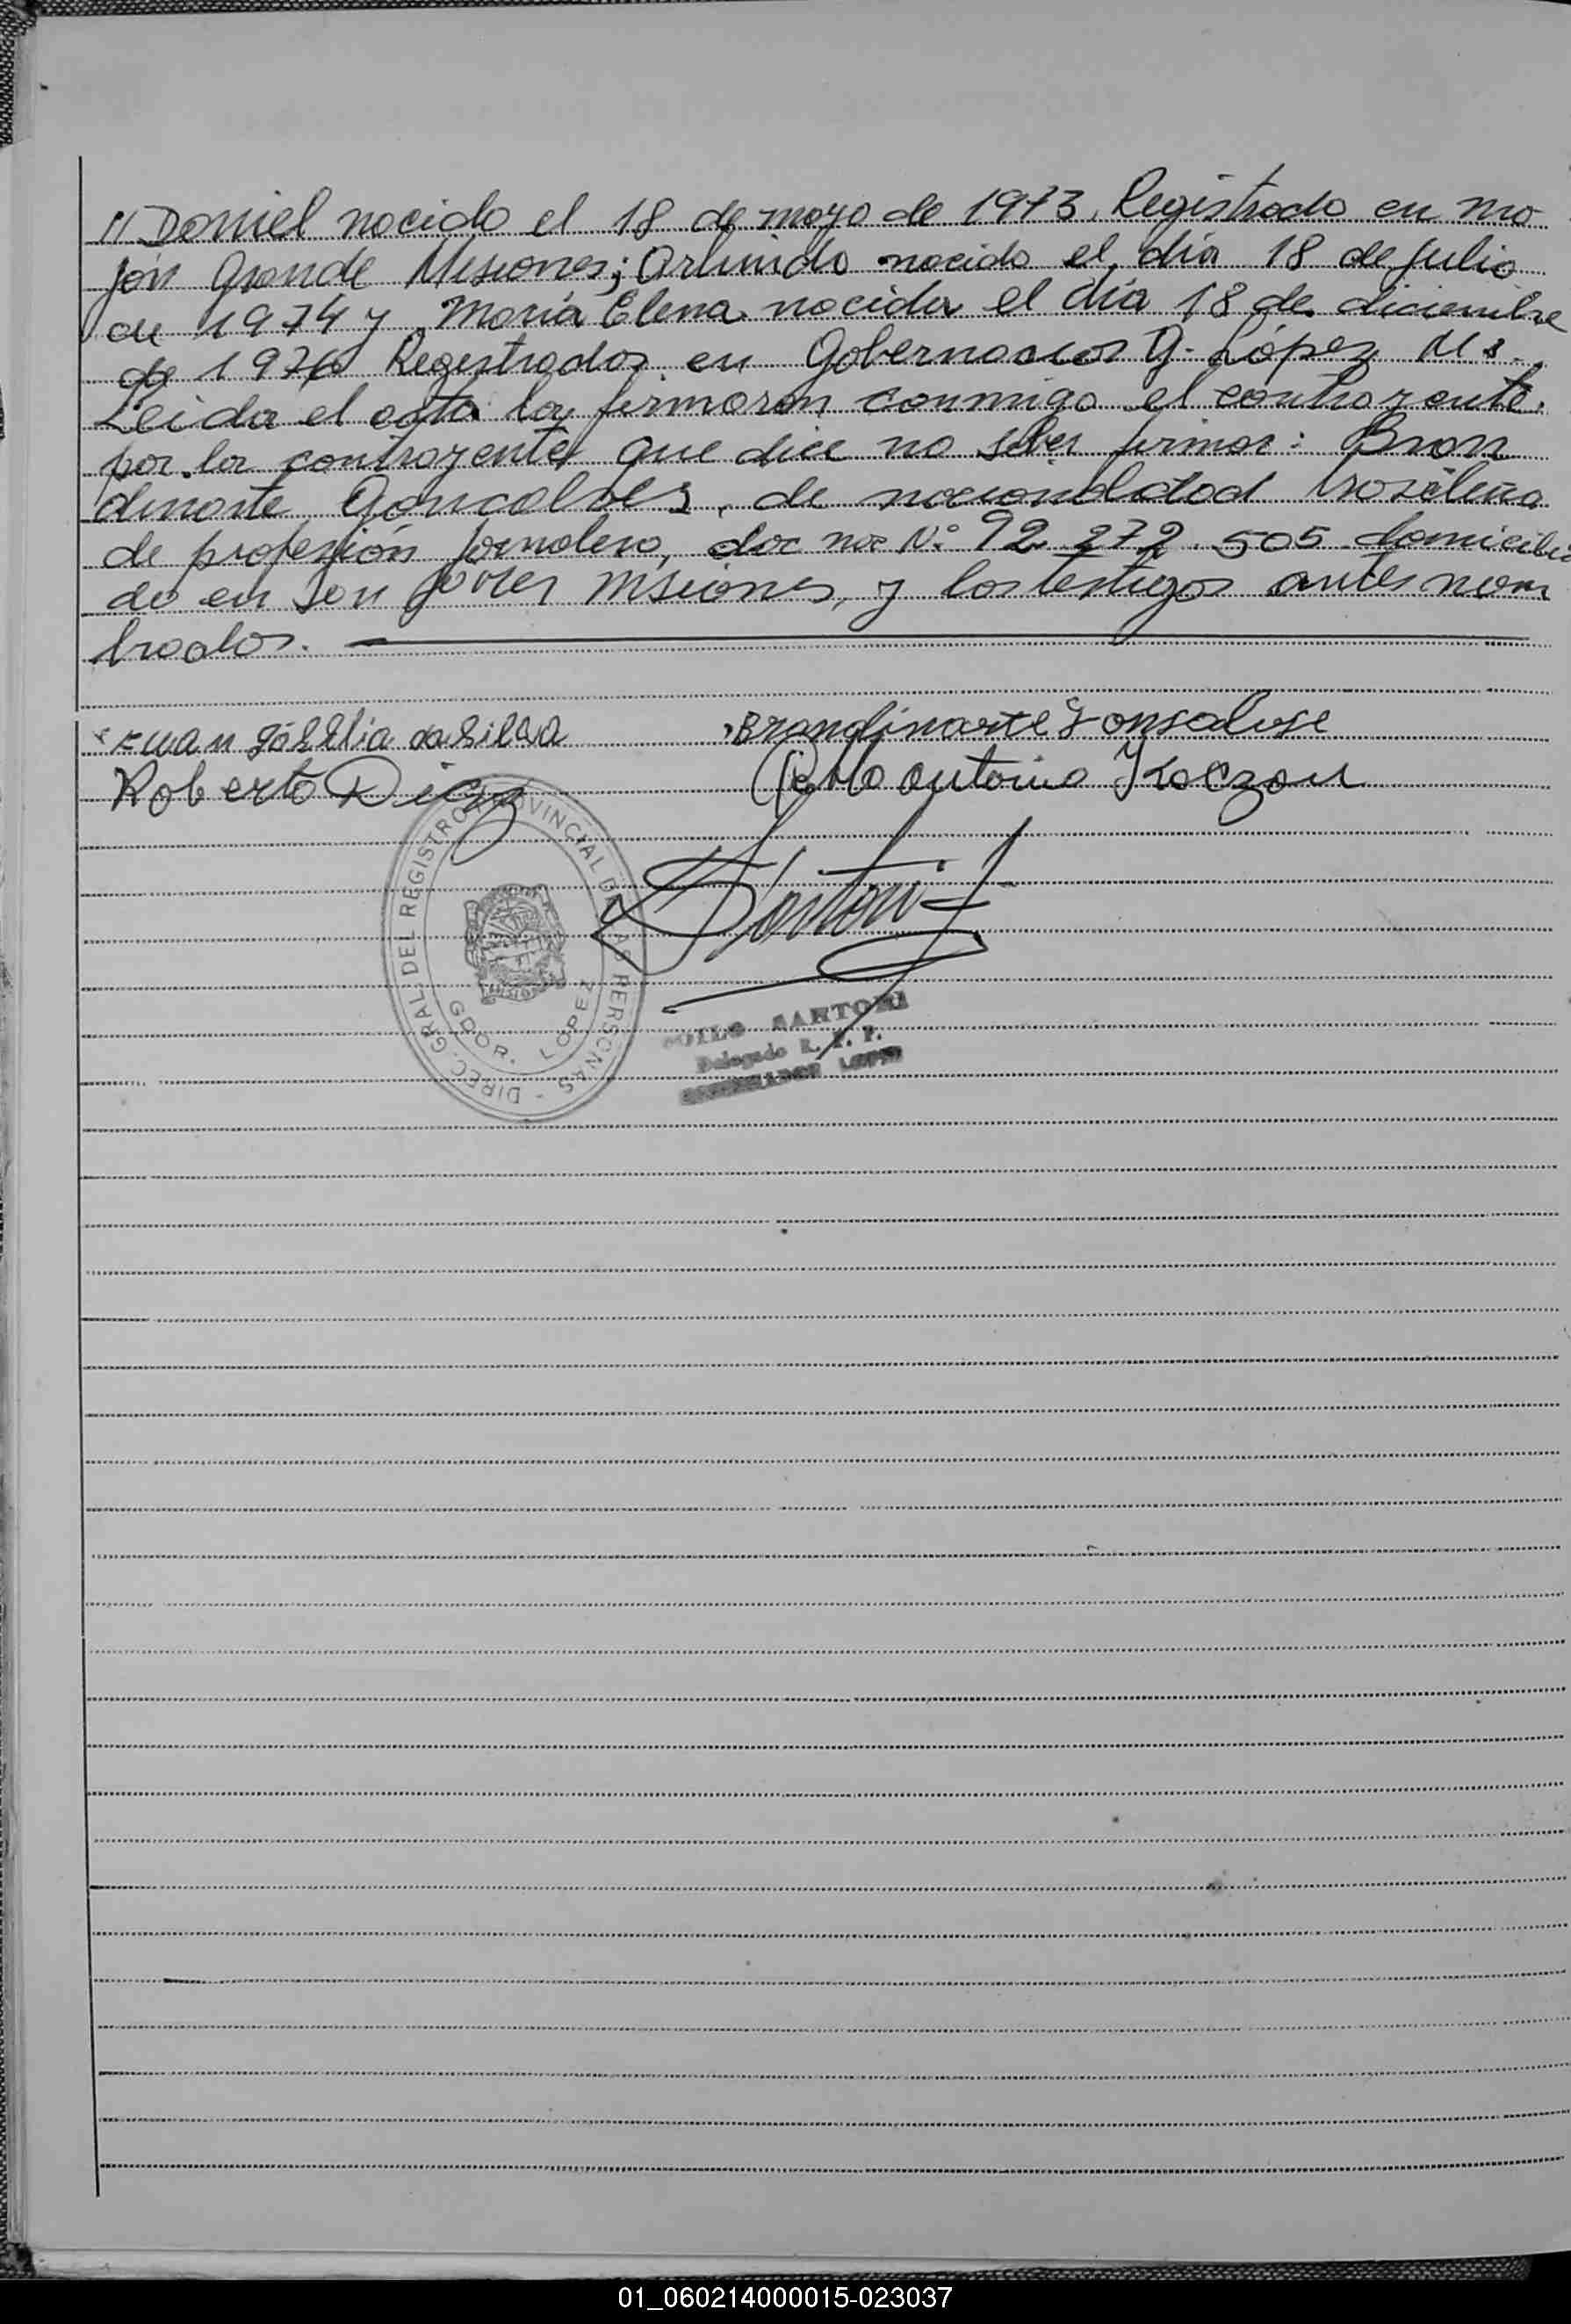 // Daniel nacido el 18 de mayo de 1973. Registrado en Mo
jón Grande Misiones; Arlindo nacido el día 18 de julio
de 1974 y María Elena nacida el día 18 de diciembre
de 1976 Registrados en G. López
Leida el acta la firmaron conmigo el contrayente.
por la contrayente que dice no saber firmar: Bran
dinarte Goncalves, de nacionalidad brasileña
de profesión jornalero, doc nac Nº 92.272.505 domicilia
do en San Javier Misiones, y los testigos antes nom
brados.
da Silva
Brandinarte Gonsalvse
Roberto Diaz
Pablo Antonio
Sartori
DIREC. GRAL. DEL REGISTRO PROVINCIAL DE LAS PERSONAS -
GDOR. LOPEZ
SARTORI
Delegado R. P. P.
GOBERNADOR LOPEZ
01_060214000015-023037